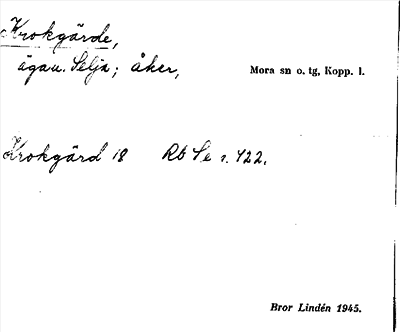 Krokgärde,
ägan. Selja; åker,
Mora sn o. tg, Kopp. l.
Krokgärd 18 Rb Se s. 422.
Bror Lindén 1945.